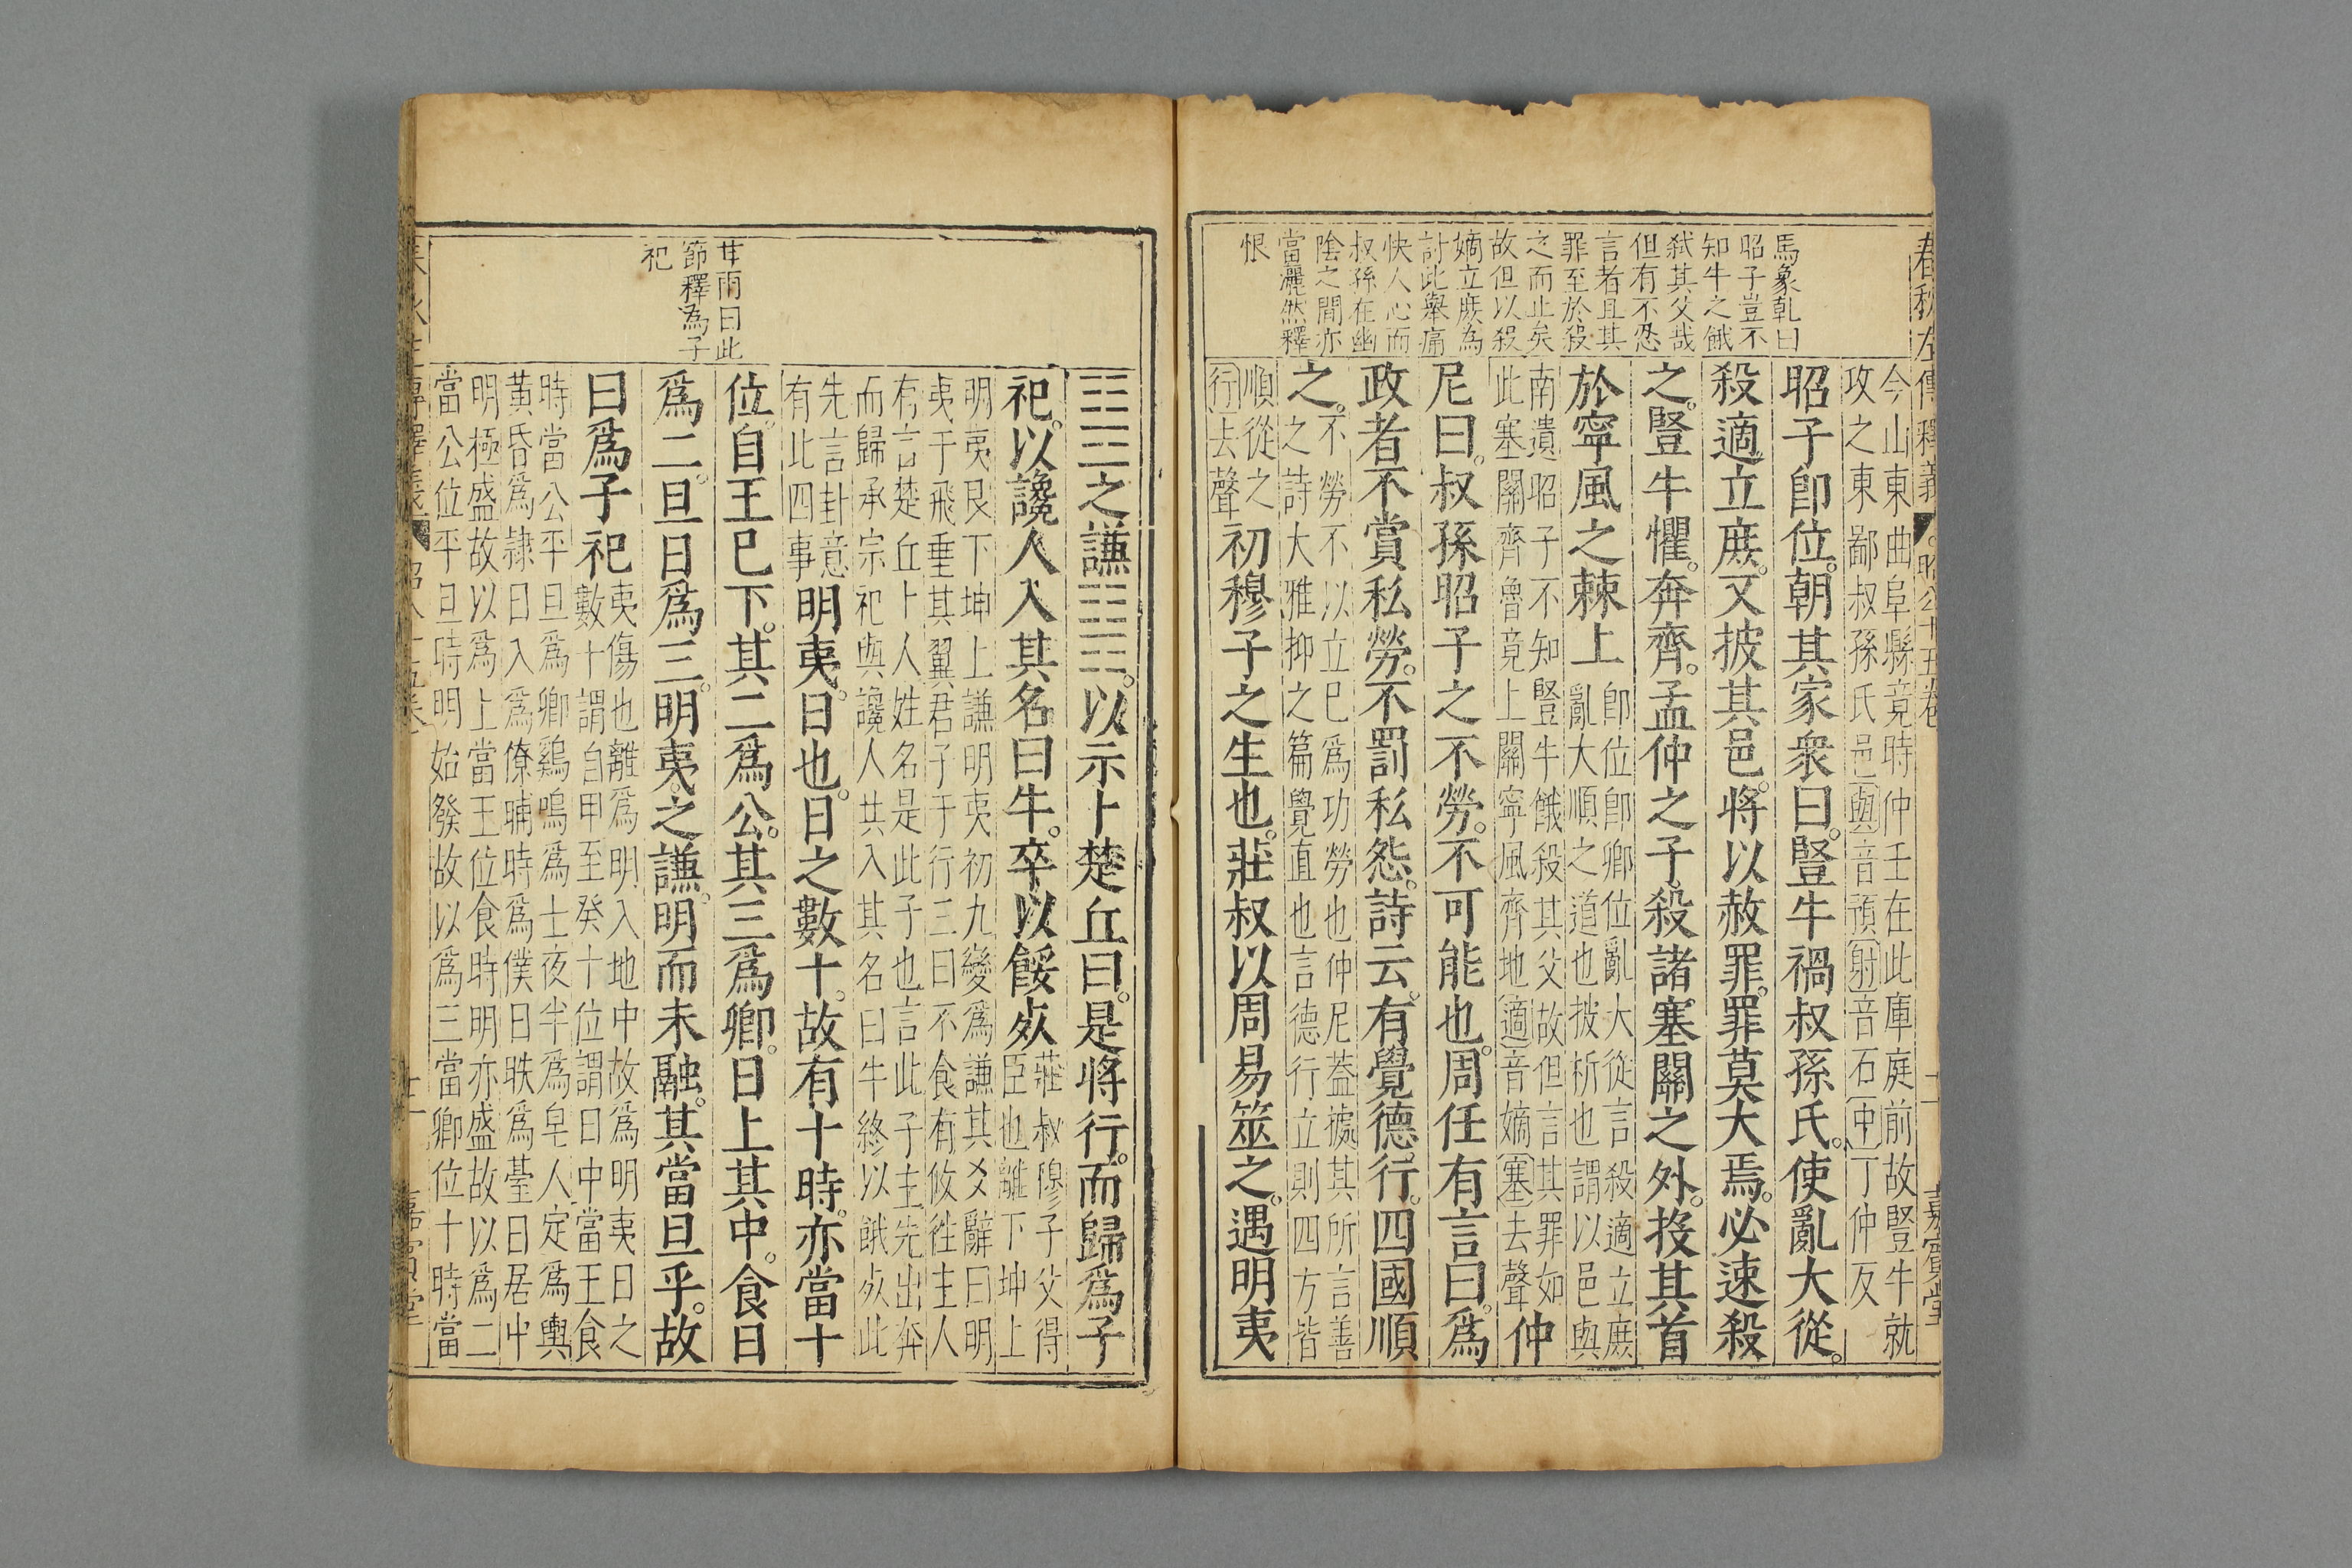 春秋左傳釋義
昭公十五卷
嘉賓堂
馬象乹曰
昭子豈不
知牛之餓
弒其父哉
但有不忍
言者且其
罪至於殺
之而止矣
故但以殺
嫡立庻為
討此舉痛
快人心而
叔孫在幽
陰之間亦
當灑然釋
恨
今山東曲阜縣竟時仲壬在此庫庭前故豎牛就
攻之東鄙叔孫氏邑與音預射音石中丁仲反
昭子卽位。朝其家衆曰。豎牛禍叔孫氏。使亂大從。
殺適立庻。又披其邑。將以赦罪。罪莫大焉。必速殺
之。豎牛懼。奔齊。孟仲之子。殺諸塞關之外。投其首
於寧風之棘上
卽位卽卿位亂大從言殺適立庻
亂大順之道也披析也謂以邑與
南遺昭子不知豎牛餓殺其父故但言其罪如
此塞關齊魯竟上關寧風齊地適音嫡塞去聲
仲
尼曰。叔孫昭子之不勞。不可能也。周任有言曰。爲
政者不賞私勞。不罰私怨。詩云。有覺德。行。四國順
之。
不勞不以立已爲功勞也仲尼蓋據其所言善
之詩大雅抑之篇覺直也言德行立則四方皆
順從之
行去聲
初穆子之生也。莊叔以周易筮之。遇明夷
甘雨曰此
節釋為子
祀
之謙。以示卜楚丘曰。是將行。而歸爲子
祀。以讒人入其名曰牛。卒以餒歿
莊叔穆子父得
臣也離下坤上
明夷艮下坤上謙明夷初九變爲謙其爻辭曰明
夷于飛垂其翼君子于行三日不食有攸往主人
有言楚丘卜人姓名是此子也言此子主先出奔
而歸承宗祀與讒人共入其名曰牛終以餓歿此
先言卦意
有此四事
明夷。日也。日之數十。故有十時。亦當十
位。自王巳下。其二爲公。其三爲卿。日上其中。食日
爲二。旦日爲三。明夷之謙。明而未融。其當旦乎。故
曰爲子祀
夷傷也離爲明入地中故爲明夷日之
數十謂自甲至癸十位謂日中當王食
時當公平旦爲卿鷄鳴爲士夜半爲皂人定爲輿
黃昏爲隷日入爲僚晡時爲僕日昳爲䑓日居中
明極盛故以爲上當王位食時明亦盛故以爲二
當公位平旦時明始發故以爲三當卿位十時當